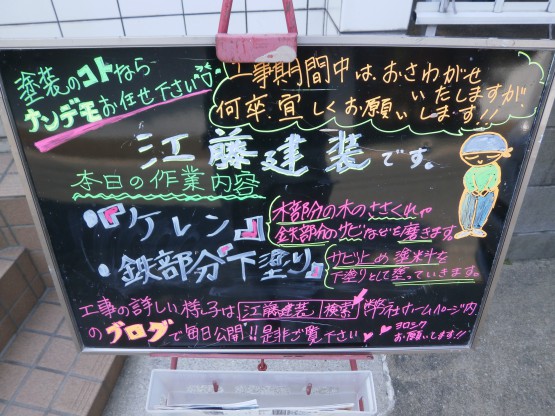 塗装のコトなら
ナンデモお任せ下さい
工事期間中は、おさわがせ
いたしますが
何卒、宜しくお願いします!!
江藤建装です。
本日の作業内容
・『ケレン』
木部分の木のささくれや
鉄部分のサビなどを磨きます。
・鉄部分『下塗り』
サビ止め塗料を
下塗りとして塗っていきます。
工事の詳しい様子は 江藤建装 検索 弊社ホームページ内
のブログで毎日公開!!是非ご覧下さい
ヨロシク
お願いします!!